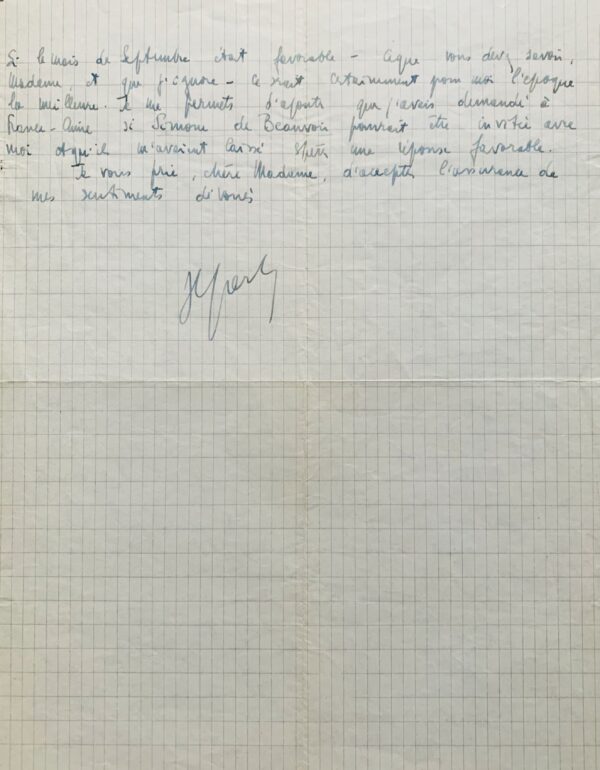 Si le mois de Septembre était favorable - ce que vous devez savoir,
Madame, et que j'ignore - ce serait certainement pour moi l'époque
la meilleure. Je me permets d'ajouter que j'avais demandé à
France-Chine si Simone de Beauvoir pourrait être invitée avec
moi et qu'ils m'avaient laissé espérer une réponse favorable.
Je vous prie, chère Madame, d'accepter l'assurance de
mes sentiments dévoués
JP Sartre